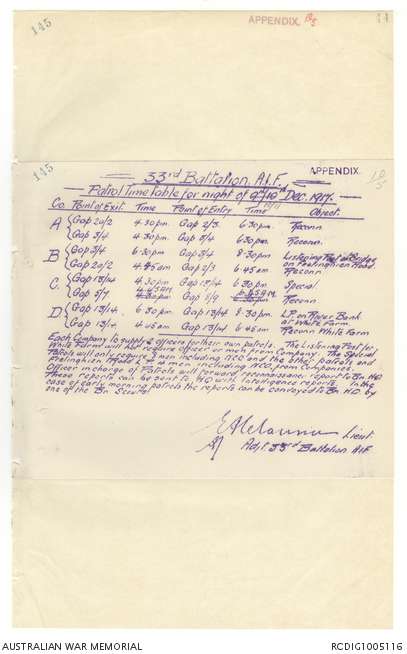 145
APPENDIX. 18/5
14
145
APPENDIX.
18/5
33rd Battalion, A.I.F.
Patrol Time Table for night of 9th/10th Dec. 1917.
Co. Point of Exit. Time Point of Entry Time Object.
A Gap 20/2 4.30pm. Gap 2/3 6.30pm. Reconn.
Gap 3/4 4.30pm. Gap 3/4 6.30pm. Reconn.
B Gap 3/4 6.30pm. Gap 3/4 8.30pm. Listening Post at Bridge
on Road
Gap 20/2 4.45am Gap 2/3 6.45am Reconn
C. Gap 13/14 4.30pm Gap 13/14 6.30pm Special
Gap 5/7 4.45AM Gap 8/9 6.45AM Reconn
D Gap 13/14 6.30pm Gap 13/14 8.30pm L.P. on River Bank
at White Farm
Gap 13/14 4.45am Gap 13/14 6.45am Reconn White Farm
Each Company to supply officers for their own patrols. The Listening Post for
White Farm will not require Officer or men from Company. The Special
Patrols will only require men including N.C.O and the other patrols an
Officer and men including N.C.O from Companies.
Officer in charge of Patrols will forward reconnaissance report to Bn H.Q.
These reports can be sent to H.Q with Intelligence reports. In the
case of early morning patrols the reports can be conveyed to Bn H.Q. by
one of the Bn Scouts.
Lieut
Adjt 33rd Battalion AIF.
AUSTRALIAN WAR MEMORIAL
RCDIG1005116